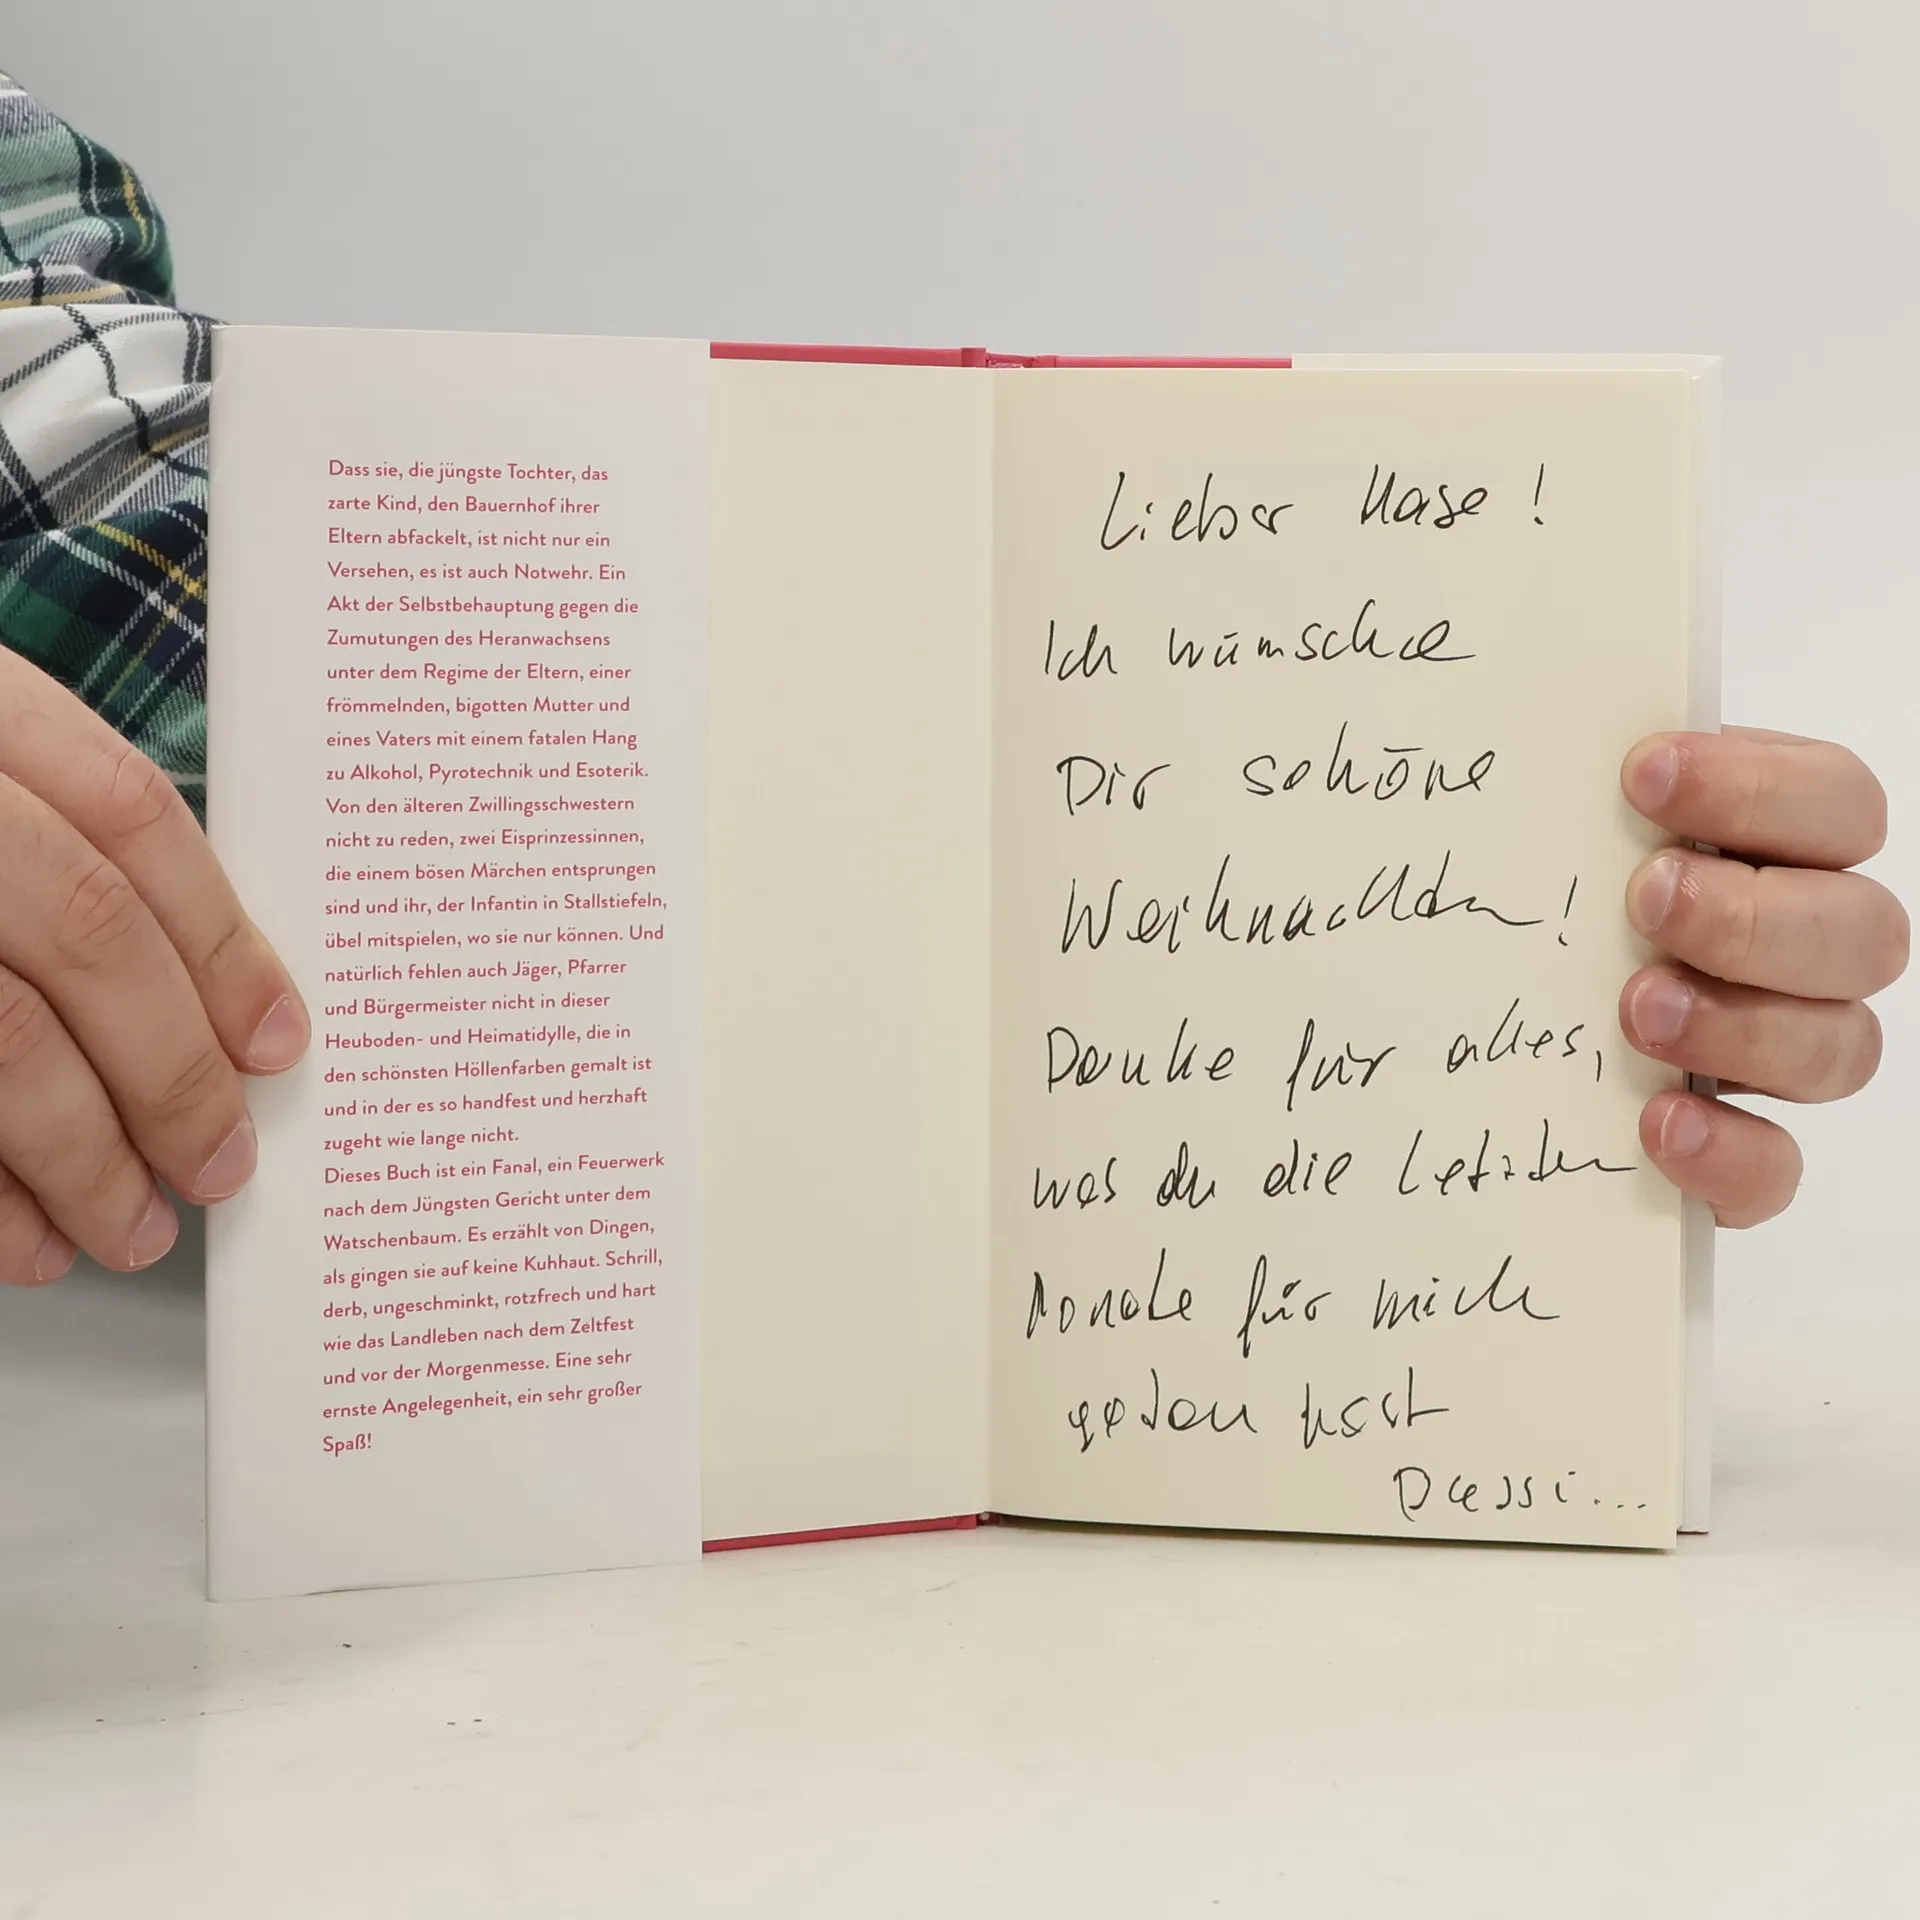 Dass sie, die jüngste Tochter, das
zarte Kind, den Bauernhof ihrer
Eltern abfackelt, ist nicht nur ein
Versehen, es ist auch Notwehr. Ein
Akt der Selbstbehauptung gegen die
Zumutungen des Heranwachsens
unter dem Regime der Eltern, einer
frömmelnden, bigotten Mutter und
eines Vaters mit einem fatalen Hang
zu Alkohol, Pyrotechnik und Esoterik.
Von den älteren Zwillingsschwestern
nicht zu reden, zwei Eisprinzessinnen,
die einem bösen Märchen entsprungen
sind und ihr, der Infantin in Stallstiefeln,
übel mitspielen, wo sie nur können. Und
natürlich fehlen auch Jäger, Pfarrer
und Bürgermeister nicht in dieser
Heuboden- und Heimatidylle, die in
den schönsten Höllenfarben gemalt ist
und in der es so handfest und herzhaft
zugeht wie lange nicht.
Dieses Buch ist ein Fanal, ein Feuerwerk
nach dem Jüngsten Gericht unter dem
Watschenbaum. Es erzählt von Dingen,
als gingen sie auf keine Kuhhaut. Schrill,
derb, ungeschminkt, rotzfrech und hart
wie das Landleben nach dem Zeltfest
und vor der Morgenmesse. Eine sehr
ernste Angelegenheit, ein sehr großer
Spaß!
Lieber Hase!
Ich wünsche
Dir schöne
Weihnachten!
Danke für alles,
was du die letzten
Monate für mich
getan hast